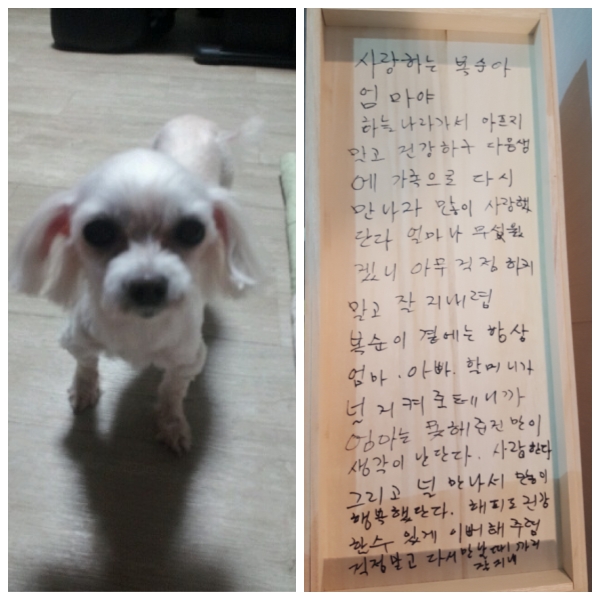 사랑하는 복순아
엄마야
하늘나라가서 아프지
말고 건강하구 다음생
에 가족으로 다시
만나라 많이 사랑했
단다 얼마나 무섭웠
겠니 아무 걱정하지
말고 잘 지내렴
복순이 곁에는 항상
엄마. 아빠. 할머니가
널 지켜
엄마는 못해준것만이
생각이 난단다. 사랑한다
그리고 널 만나서 많이
행복했단다. 해피도 건강
한수 있게 이뻐해주렴
걱정말고 다시만날때까지
잘지내